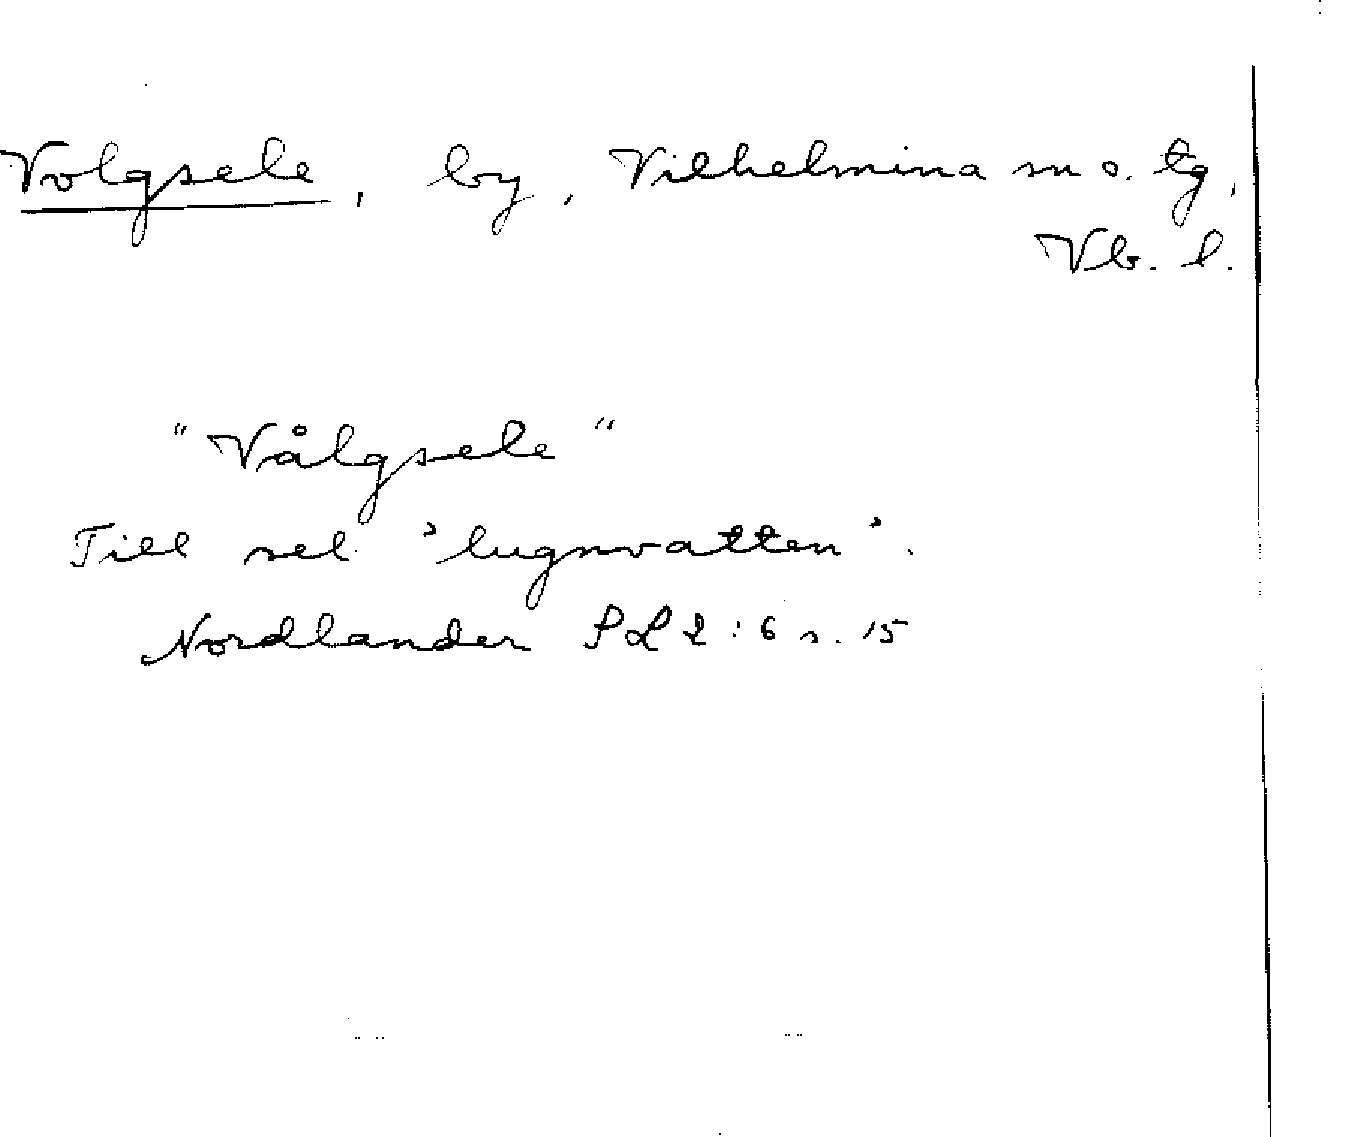 Volgsele, by, Vilhelmina sn o. tg,
Vb. l.
"Vålgsele"
Till sel 'lugnvatten'.
Nordlander PL 2:6 s. 15